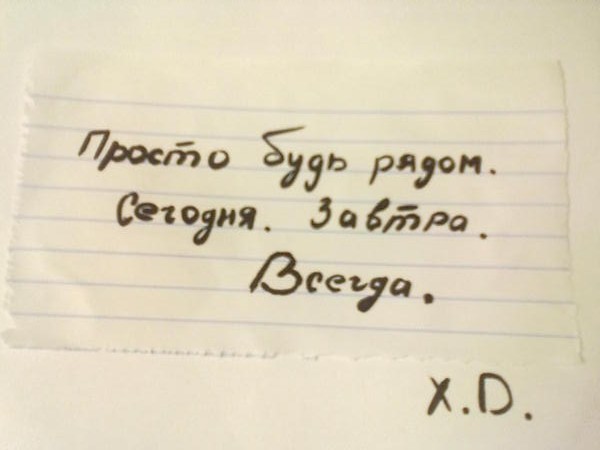 Просто будь рядом.
Сегодня. Завтра.
Всегда.
X.D.